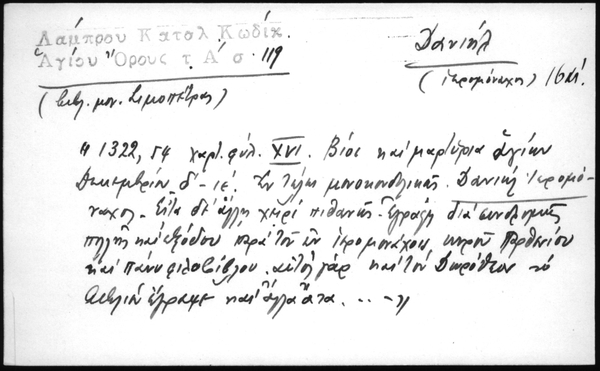 Λάμπρου Καταλ Κωδίκ.
Ἁγίου Ὄρους τ. Α΄ σ. 119
Δανιήλ
(ἱερομόναχος) 16 αἰ.
(Βιβλ. μον. Σιμοπέτρας)
" 1322, 54 χαρτ. φύλ. XVI. Βίος καὶ μαρτύρια ἁγίων
Δεκεμβρίου δ΄-ιέ. Ἐν τέλει μονοκονδυλικῶς. Δανιὴλ ἱερομό-
ναχος. Εἶτα δι' ἄλλης χειρὸς πιθανῶς. Ἐγράφη διὰ συνδρομῆς
πολλῆς καὶ ἐξόδου παρὰ τοῦ ἐν ἱερομονάχοις κυροῦ Παρθενίου
καὶ πάνυ φιλοβίβλου. αὐτὸς γὰρ καὶ τὸν Δωρόθεον τὸ
βιβλίον ἔγραψε καὶ ἄλλα ἄττα. .. — "